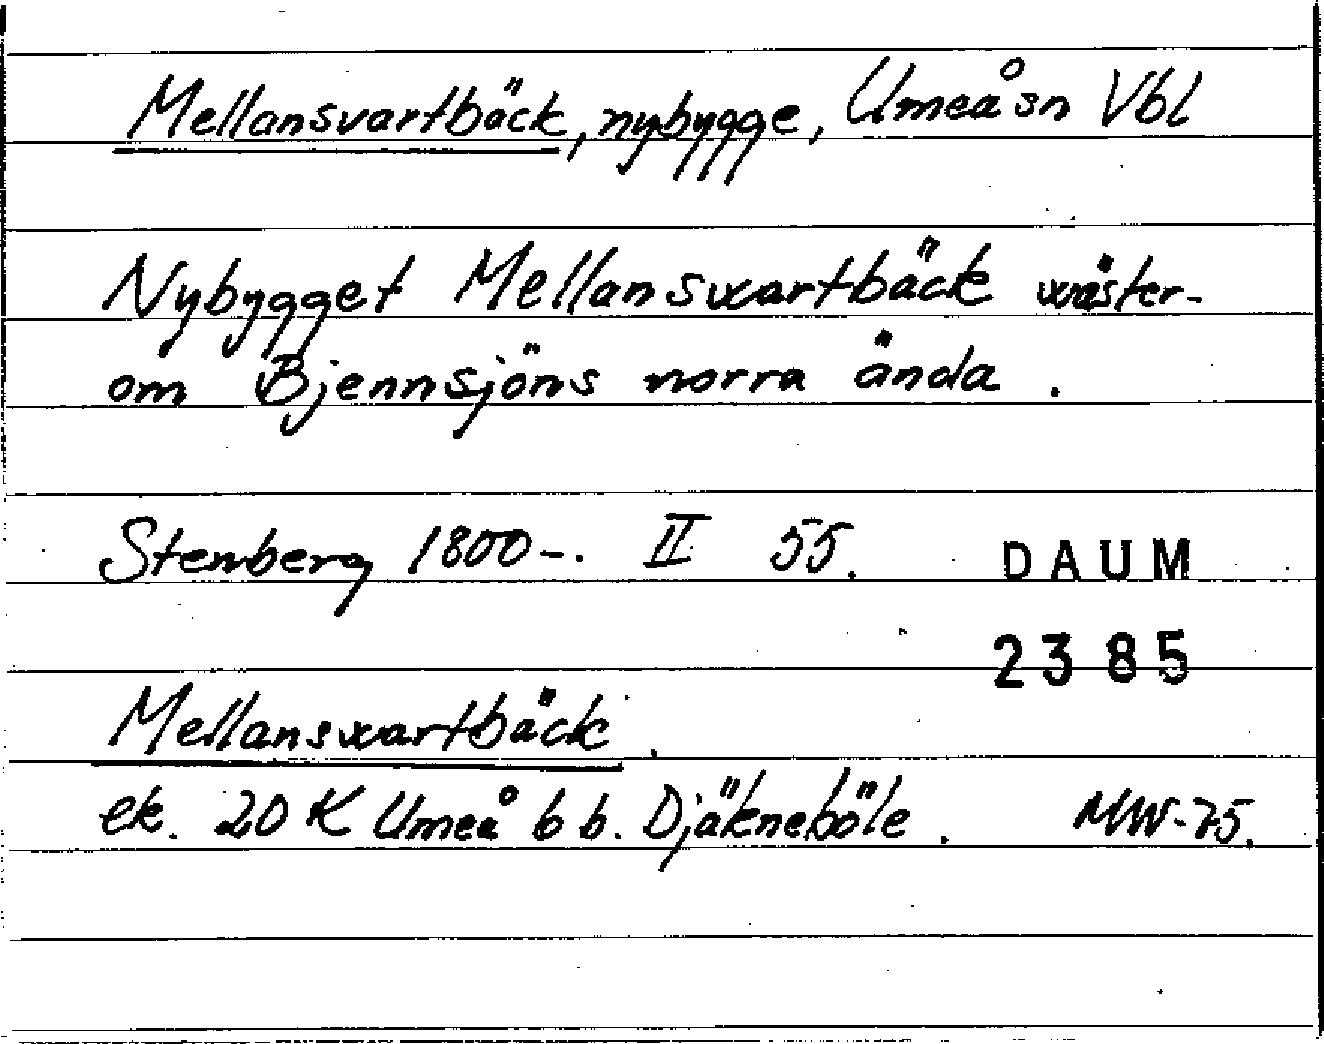 Mellansvartbäck, nybygge, Umeå sn Vbl
Nybygget Mellanswartbäck wäster-
om Bjennsjöns norra ända.
Stenberg 1800-. II 55.
DAUM
2385
Mellanswartbäck.
ek. 20 K Umeå 6 b. Djäkneböle. MW-75.